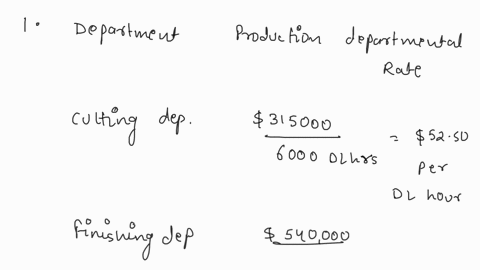 1. Department Production departmental Rate
Cutting dep. $315000 / 6000 DLhrs = $52.50 per DL hour
Finishing dep $540,000